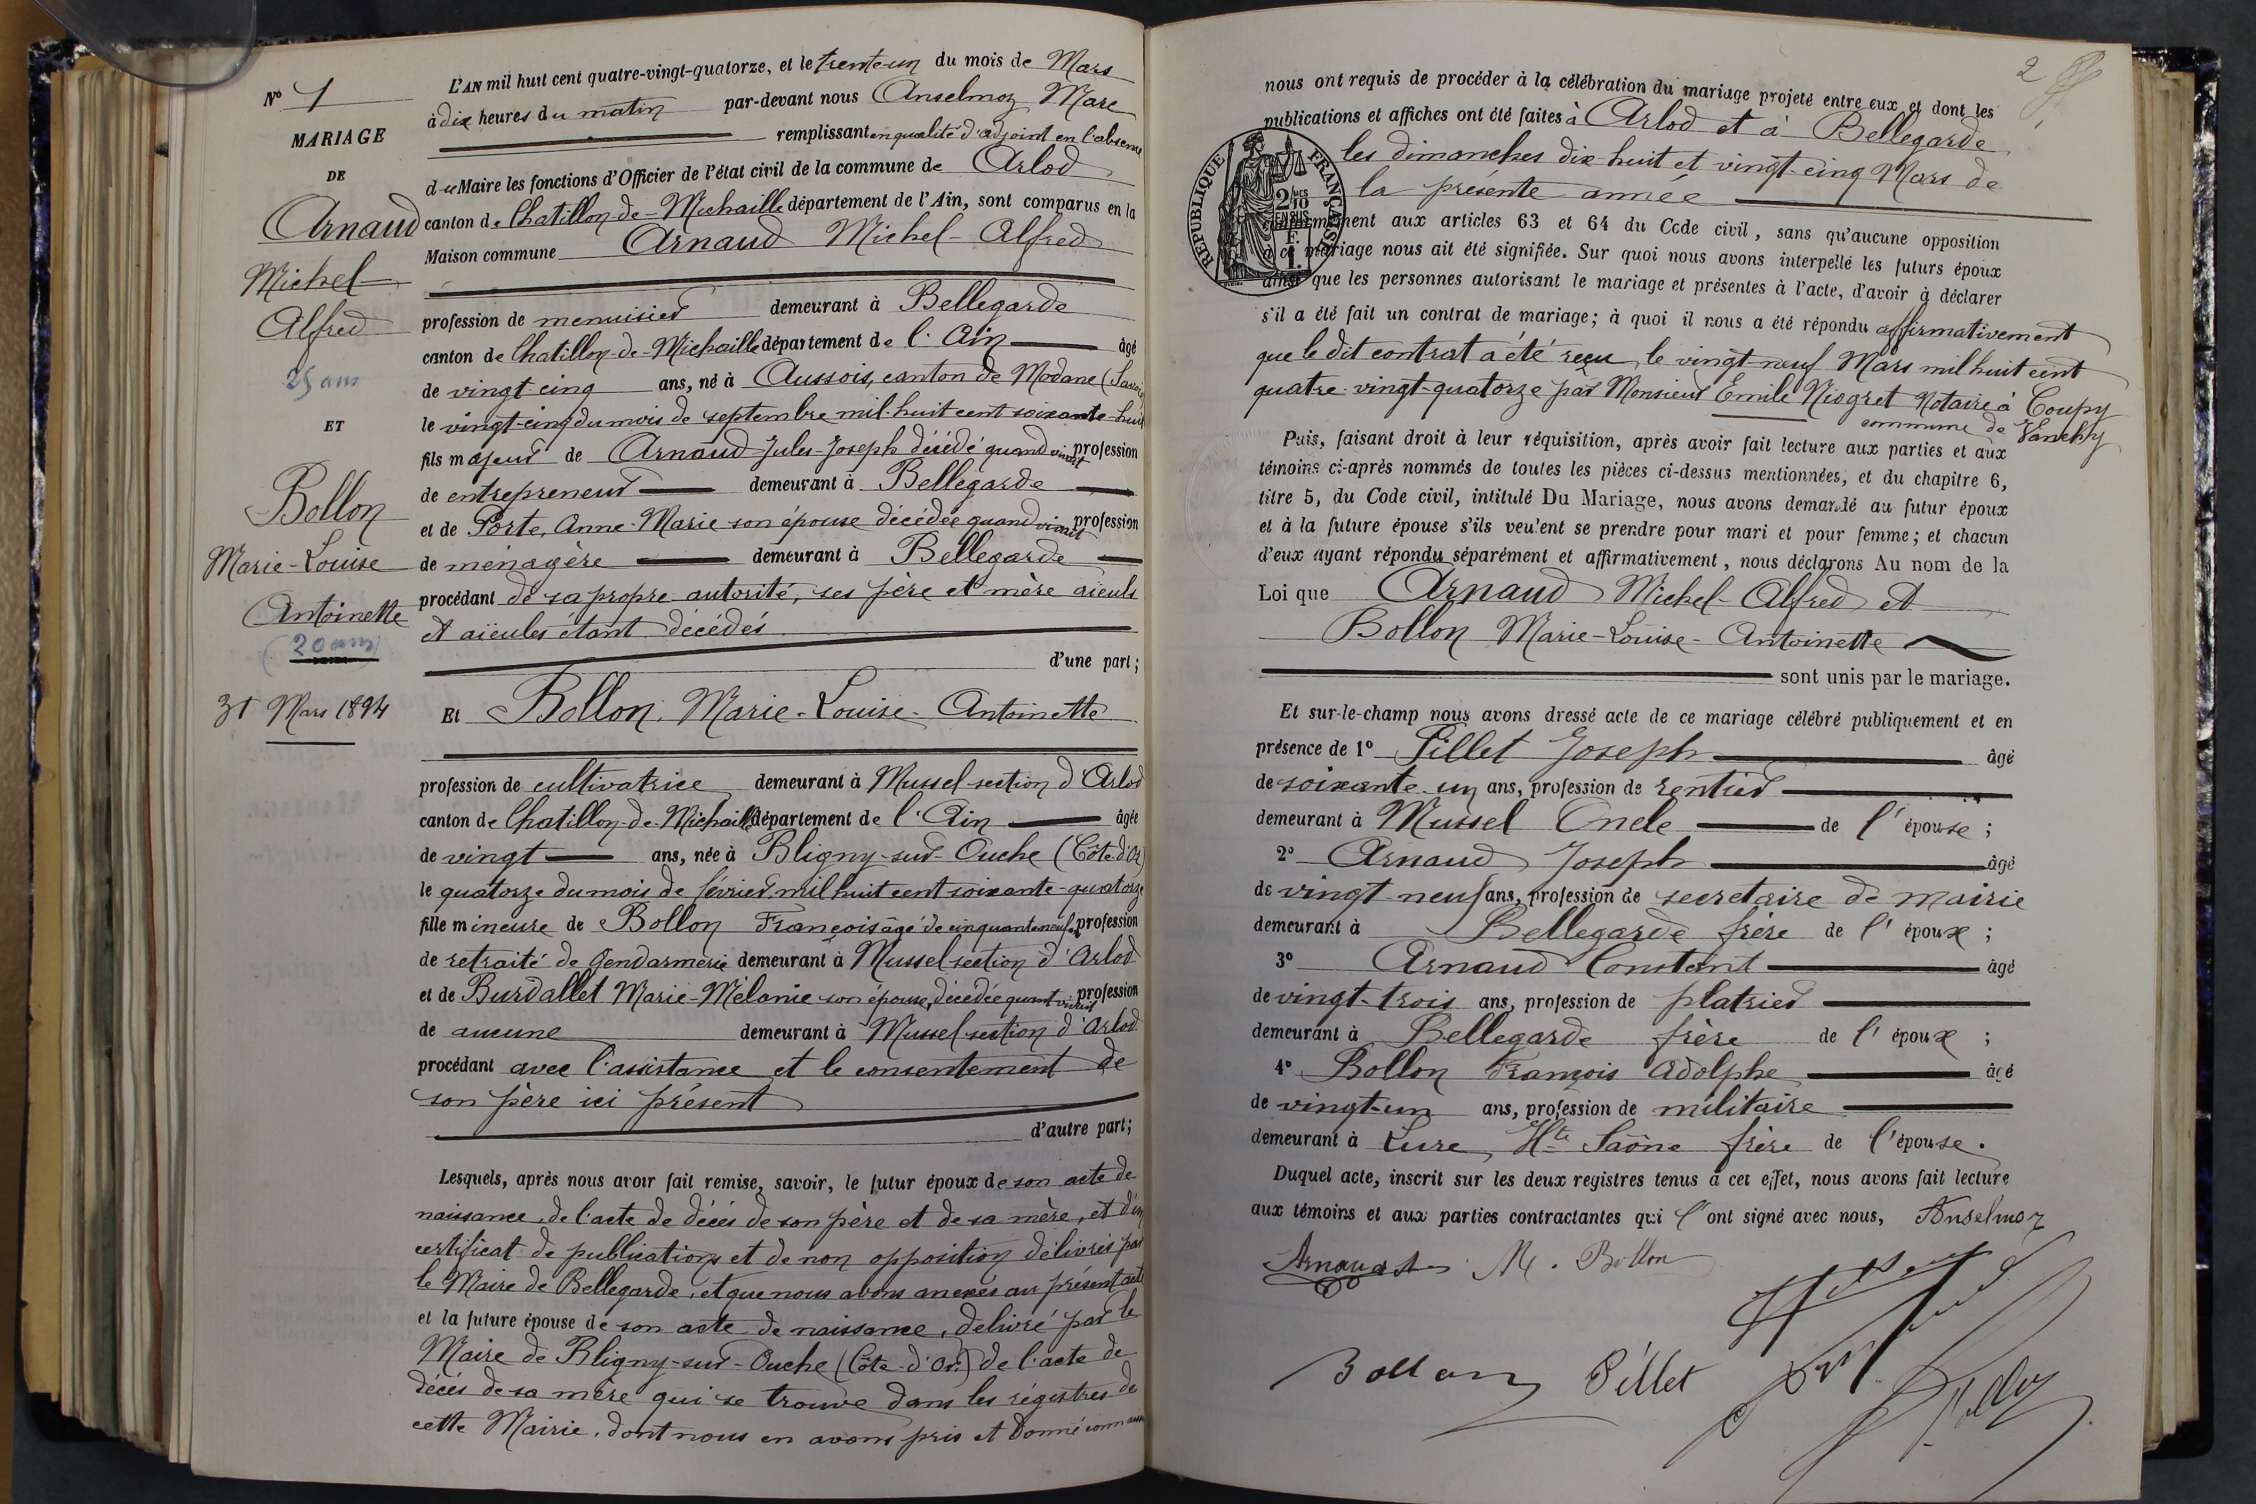 N° 1
MARIAGE
DE
Arnaud
Michel
Alfred
25 ans
ET
Bollon
Marie-Louise
Antoinette
(20 ans)
31 Mars 1894
L'AN mil huit cent quatre-vingt-quatorze, et le trente-un du mois de Mars
à dix heures du matin par-devant nous Anselmoz Marc
remplissant en qualité d'adjoint en l'absence
du Maire les fonctions d'Officier de l'état civil de la commune de Arlod
canton de Chatillon-de-Michaille département de l'Ain, sont comparus en la
Maison commune Arnaud Michel-Alfred
profession de menuisier demeurant à Bellegarde
canton de Chatillon-de-Michaille département de l'Ain âgé
de vingt-cinq ans, né à Aussois, canton de Modane (Savoie)
le vingt-cinq du mois de septembre mil-huit cent soixante-huit
fils majeur de Arnaud Jules-Joseph décédé quand vivait profession
de entrepreneur demeurant à Bellegarde
et de Porte, Anne-Marie son épouse décédée quand vivait profession
de ménagère demeurant à Bellegarde
procédant de sa propre autorité, ses père et mère aieuls
et aïeules étant décédés
d'une part;
Et Bollon, Marie-Louise-Antoinette
profession de cultivatrice demeurant à Mussel section d'Arlod
canton de Chatillon-de-Michaille département de l'Ain âgée
de vingt ans, née à Bligny-sur-Ouche (Côte d'Or)
le quatorze du mois de février mil huit cent soixante-quatorze
fille mineure de Bollon François âgé de cinquante neuf profession
de retraité de Gendarmerie demeurant à Mussel section d'Arlod
et de Burdallet Marie-Mélanie son épouse, décédée quant vivait profession
de aucune demeurant à Mussel section d'Arlod
procédant avec l'assistance et le consentement de
son père ici présent
d'autre part;
Lesquels, après nous avoir fait remise, savoir, le futur époux de son acte de
naissance, de l'acte de décés de son père et de sa mère, et d'un
certificat de publications et de non opposition délivrés par
le Maire de Bellegarde, et que nous avons anexés au présent acte
et la future épouse de son acte de naissance, delivré par le
Maire de Bligny-sur-Ouche (Côte-d'Or) de l'acte de
décés de sa mère qui se trouve dans les régistres de
cette Mairie, dont nous en avons pris et donné connaissance
2
nous ont requis de procéder à la célébration du mariage projeté entre eux et dont les
publications et affiches ont été faites à Arlod et à Bellegarde
les dimanches dix-huit et vingt-cinq Mars de
la présente année
RÉPUBLIQUE FRANÇAISE
2/10
EN SUS
F.
1.
conformément aux articles 63 et 64 du Code civil, sans qu'aucune opposition
à ce mariage nous ait été signifiée. Sur quoi nous avons interpellé les futurs époux
ainsi que les personnes autorisant le mariage et présentes à l'acte, d'avoir à déclarer
s'il a été fait un contrat de mariage; à quoi il nous a été répondu affirmativement
que le dit contrat a été reçu, le vingt neuf Mars mil huit cent
quatre-vingt-quatorze par Monsieur Emile Niogret Notaire à Coupy
commune de Vanchy
Puis, faisant droit à leur réquisition, après avoir fait lecture aux parties et aux
témoins ci-après nommés de toutes les pièces ci-dessus mentionnées, et du chapitre 6,
titre 5, du Code civil, intitulé Du Mariage, nous avons demandé au futur époux
et à la future épouse s'ils veulent se prendre pour mari et pour femme; et chacun
d'eux ayant répondu séparément et affirmativement, nous déclarons Au nom de la
Loi que Arnaud Michel-Alfred et
Bollon Marie-Louise-Antoinette
sont unis par le mariage.
Et sur-le-champ nous avons dressé acte de ce mariage célébré publiquement et en
présence de 1° Pillet Joseph âgé
de soixante-un ans, profession de rentier
demeurant à Mussel Oncle de l'épouse;
2° Arnaud Joseph âgé
de vingt-neuf ans, profession de secretaire de mairie
demeurant à Bellegarde frère de l'époux;
3° Arnaud Constant âgé
de vingt-trois ans, profession de platrier
demeurant à Bellegarde frère de l'époux;
4° Bollon François Adolphe âgé
de vingt-un ans, profession de militaire
demeurant à Lure, Hte Saône frère de l'épouse.
Duquel acte, inscrit sur les deux registres tenus à cet effet, nous avons fait lecture
aux témoins et aux parties contractantes qui l'ont signé avec nous, Anselmoz
Arnaud A M. Bollon
Bollon Pillet